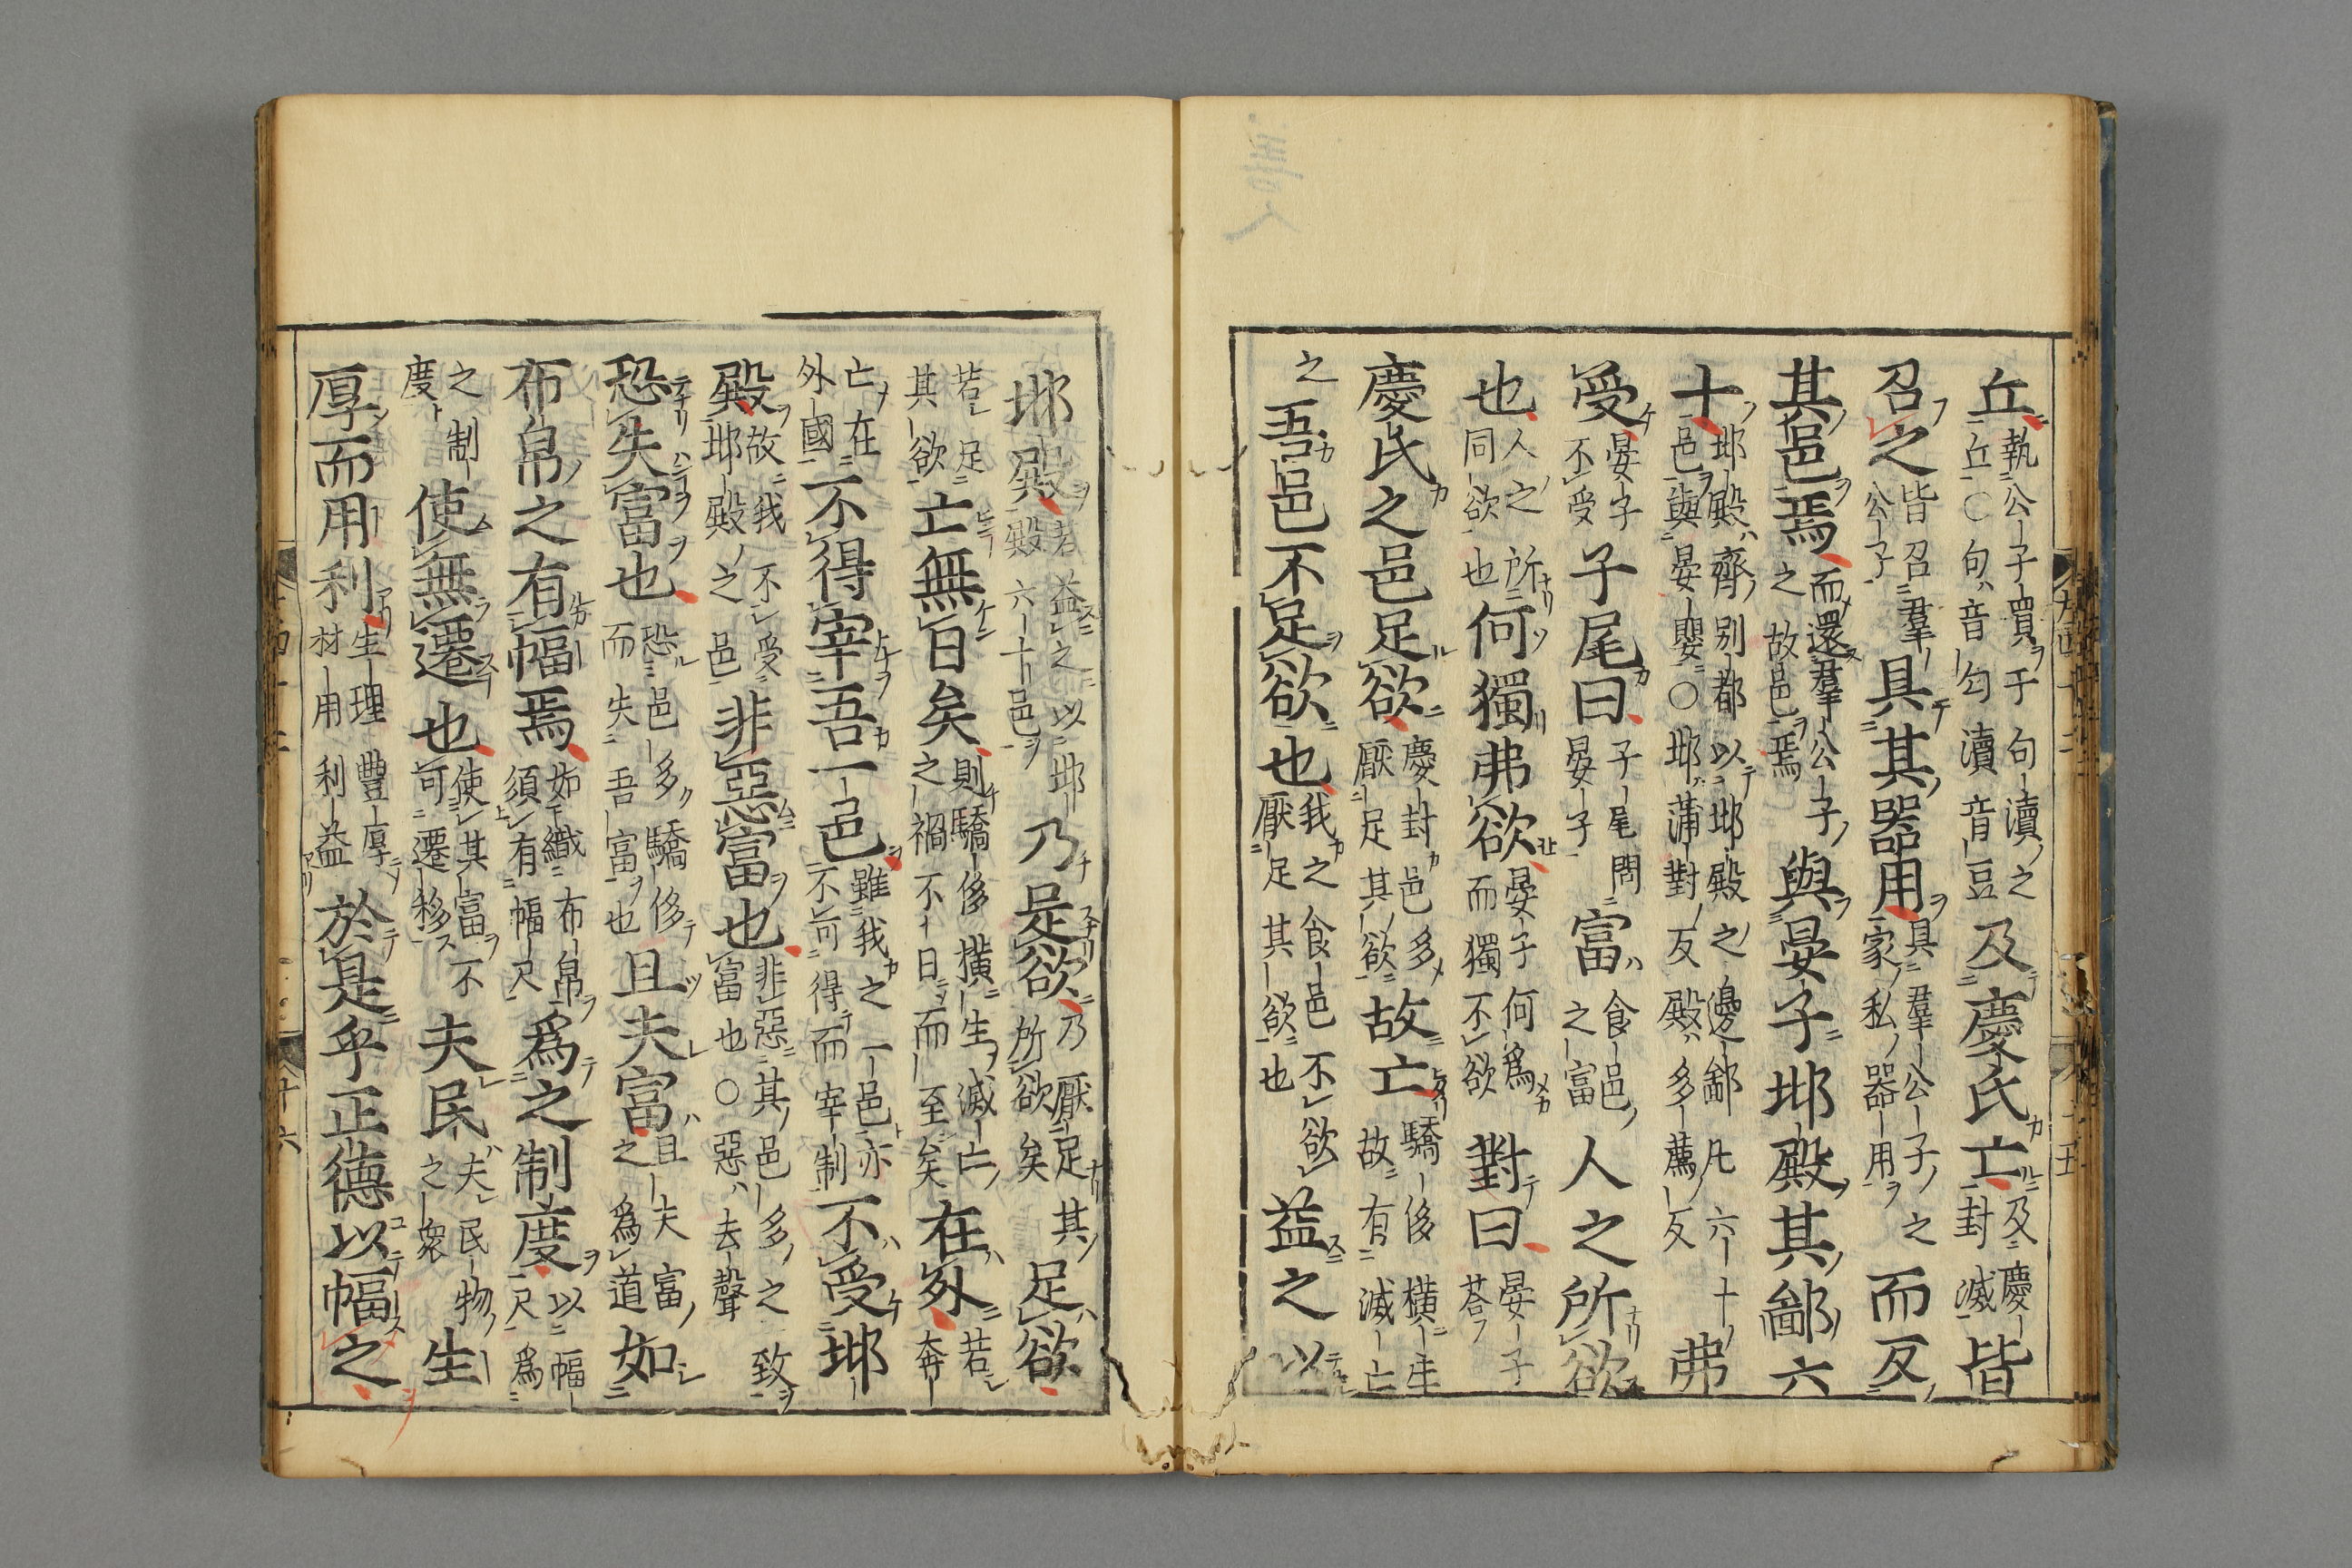 丘執公子賈于句瀆之丘○句音勾瀆音豆及慶氏亡及慶封滅皆
召之皆召羣公子具其器用具羣公子之家私器用而反
其邑焉而還羣公子之故邑焉與晏子邶殿其鄙六
十邶殿齊別都以邶殿之邊鄙凡六十邑與晏嬰○邶蒲對反殿多薦反弗
受晏子不受子尾曰子尾問晏子富食邑之富人之所欲
也人之所同欲也何獨弗欲晏子何爲而獨不欲對曰晏子荅
慶氏之邑足欲慶封邑多厭足其欲故亡驕侈橫生故有滅亡
之吾邑不足欲也我之食邑不欲厭足其欲也益之以
邶殿若益之以邶殿六十邑乃足欲乃厭足其所欲矣足欲
若足其欲亡無日矣則驕侈橫生滅亡之禍不日而至矣在外若奔
亡在外國不得宰吾一邑雖我之一邑亦不可得而宰制不受邶
殿故我不受邶殿之邑非惡富也非惡其邑多之富也○惡去聲致
恐失富也恐邑多驕侈而失吾富也且夫富且夫富之爲道如
布帛之有幅焉如織布帛須有幅尺爲之制度以幅尺爲
之制度使無遷也使其富不可遷移夫民夫民物之衆生
厚而用利生理豐厚材用利益於是乎正德以幅之